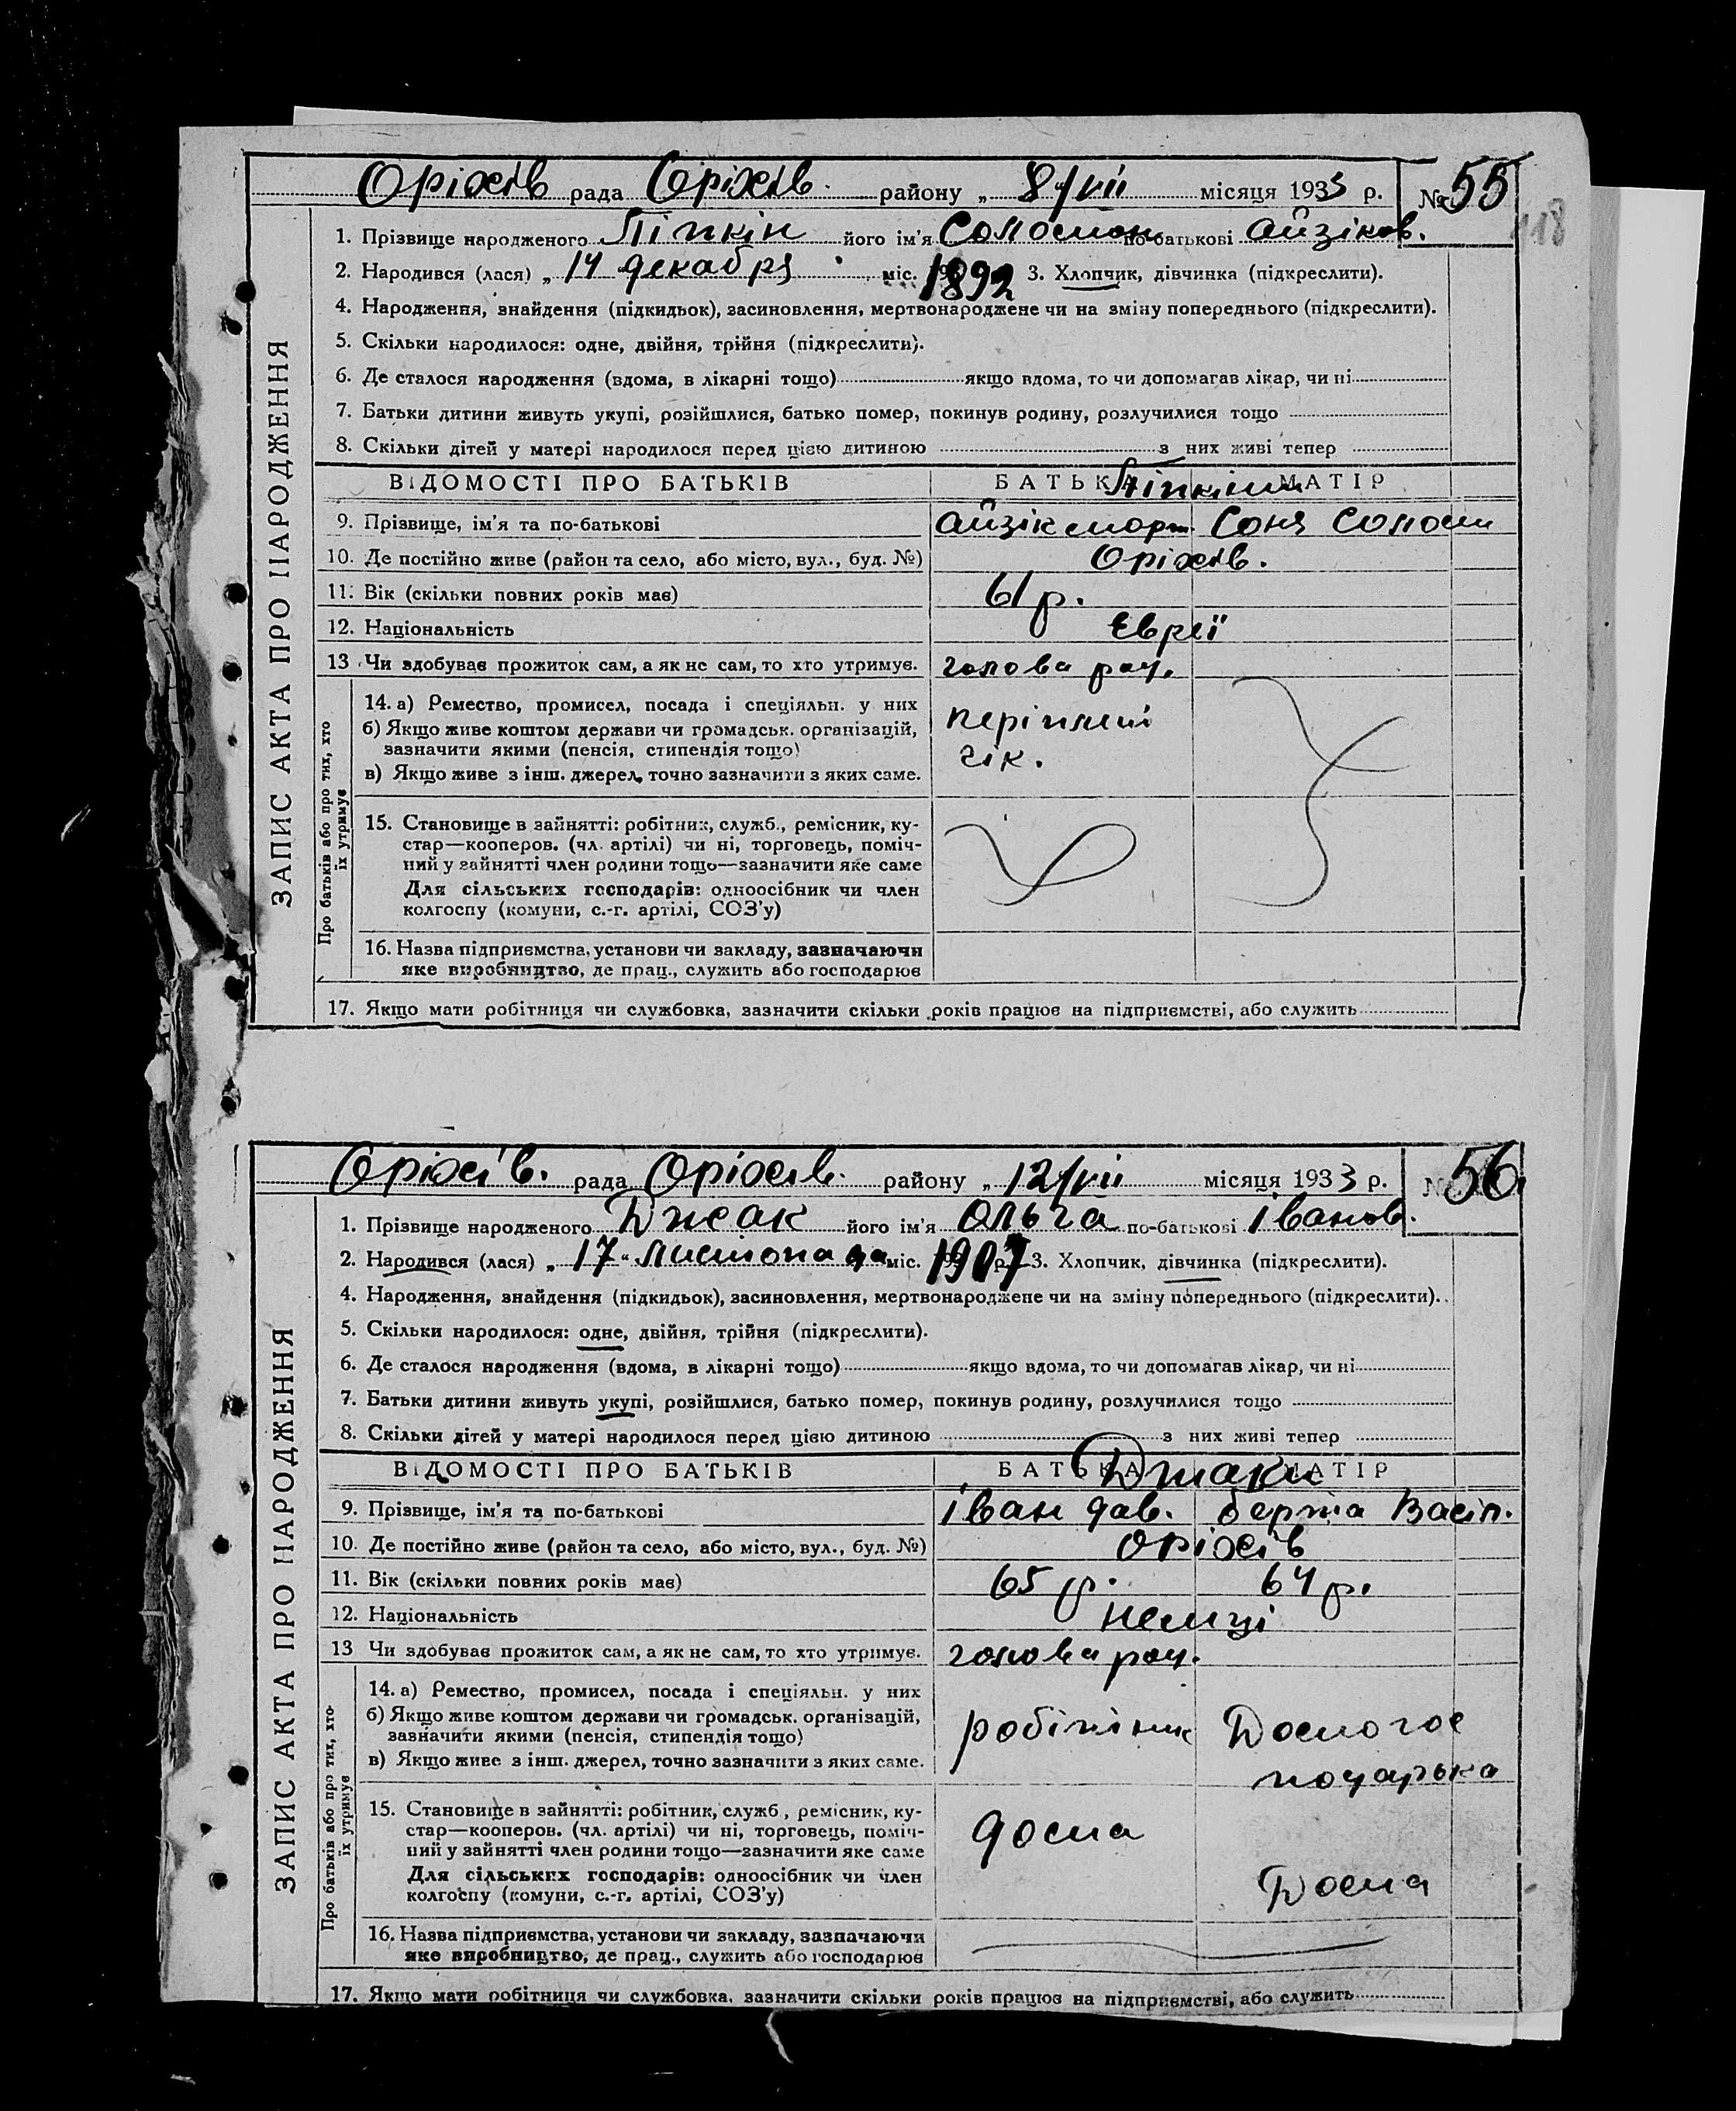 Оріхів рада Оріхів. району „ 8/VII місяця 1933 р. № 55
118
1. Прізвище народженого Ліпкін його ім'я Соломон по-батькові Айзіков.
2. Народився (лася) „ 14 декабря міс. 1892 3. Хлопчик, дівчинка (підкреслити).
4. Народження, знайдення (підкидьок), засиновлення, мертвонароджене чи на зміну попереднього (підкреслити).
5. Скільки народилося: одне, двійня, трійня (підкреслити).
6. Де сталося народження (вдома, в лікарні тощо) якщо вдома, то чи допомагав лікар, чи ні
7. Батьки дитини живуть укупі, розійшлися, батько помер, покинув родину, розлучилися тощо
8. Скільки дітей у матері народилося перед цією дитиною з них живі тепер
ЗАПИС АКТА ПРО НАРОДЖЕННЯ
ВІДОМОСТІ ПРО БАТЬКІВ БАТЬКА МАТІР
Ліпкіни
9. Прізвище, ім'я та по-батькові Айзік Морт Соня Солом
10. Де постійно живе (район та село, або місто, вул., буд. №) Оріхів.
11. Вік (скільки повних років має) 61 р.
12. Національність Євреї
13 Чи здобуває прожиток сам, а як не сам, то хто утримує. голова род.
Про батьків або про тих, хто їх утримує
14. а) Ремество, промисел, посада і спеціяльн. у них
б) Якщо живе коштом держави чи громадськ. організацій,
зазначити якими (пенсія, стипендія тощо)
в) Якщо живе з інш. джерел, точно зазначити з яких саме.
15. Становище в зайнятті: робітник, служб., ремісник, ку-
стар—кооперов. (чл. артілі) чи ні, торговець, поміч-
ний у зайнятті член родини тощо—зазначити яке саме
Для сільських господарів: одноосібник чи член
колгоспу (комуни, с.-г. артілі, СОЗ'у)
16. Назва підприємства, установи чи закладу, зазначаючи
яке виробництво, де прац., служить або господарює
17. Якщо мати робітниця чи службовка, зазначити скільки років працює на підприємстві, або служить
Оріхів. рада Оріхів. району „ 12/VII місяця 1933 р. № 56
1. Прізвище народженого Джак його ім'я Ольга по-батькові Іванов.
2. Народився (лася) „ 17 “ листопада міс. 1907 р. 3. Хлопчик, дівчинка (підкреслити).
4. Народження, знайдення (підкидьок), засиновлення, мертвонароджене чи на зміну попереднього (підкреслити).
5. Скільки народилося: одне, двійня, трійня (підкреслити).
6. Де сталося народження (вдома, в лікарні тощо) якщо вдома, то чи допомагав лікар, чи ні
7. Батьки дитини живуть укупі, розійшлися, батько помер, покинув родину, розлучилися тощо
8. Скільки дітей у матері народилося перед цією дитиною з них живі тепер
ЗАПИС АКТА ПРО НАРОДЖЕННЯ
ВІДОМОСТІ ПРО БАТЬКІВ БАТЬКА МАТІР
Джаки
9. Прізвище, ім'я та по-батькові Іван Дав. Берта Васіл.
10. Де постійно живе (район та село, або місто, вул., буд. №) Оріхів
11. Вік (скільки повних років має) 65 р. 64 р.
12. Національність Немці
13 Чи здобуває прожиток сам, а як не сам, то хто утримує. голова род.
Про батьків або про тих, хто їх утримує
14. а) Ремество, промисел, посада і спеціяльн. у них
б) Якщо живе коштом держави чи громадськ. організацій, робітник Домогос
зазначити якими (пенсія, стипендія тощо)
в) Якщо живе з інш. джерел, точно зазначити з яких саме. подарька
15. Становище в зайнятті: робітник, служб., ремісник, ку-
стар—кооперов. (чл. артілі) чи ні, торговець, поміч- дома
ний у зайнятті член родини тощо—зазначити яке саме
Для сільських господарів: одноосібник чи член Дома
колгоспу (комуни, с.-г. артілі, СОЗ'у)
16. Назва підприємства, установи чи закладу, зазначаючи
яке виробництво, де прац., служить або господарює
17. Якщо мати робітниця чи службовка, зазначити скільки років працює на підприємстві, або служить